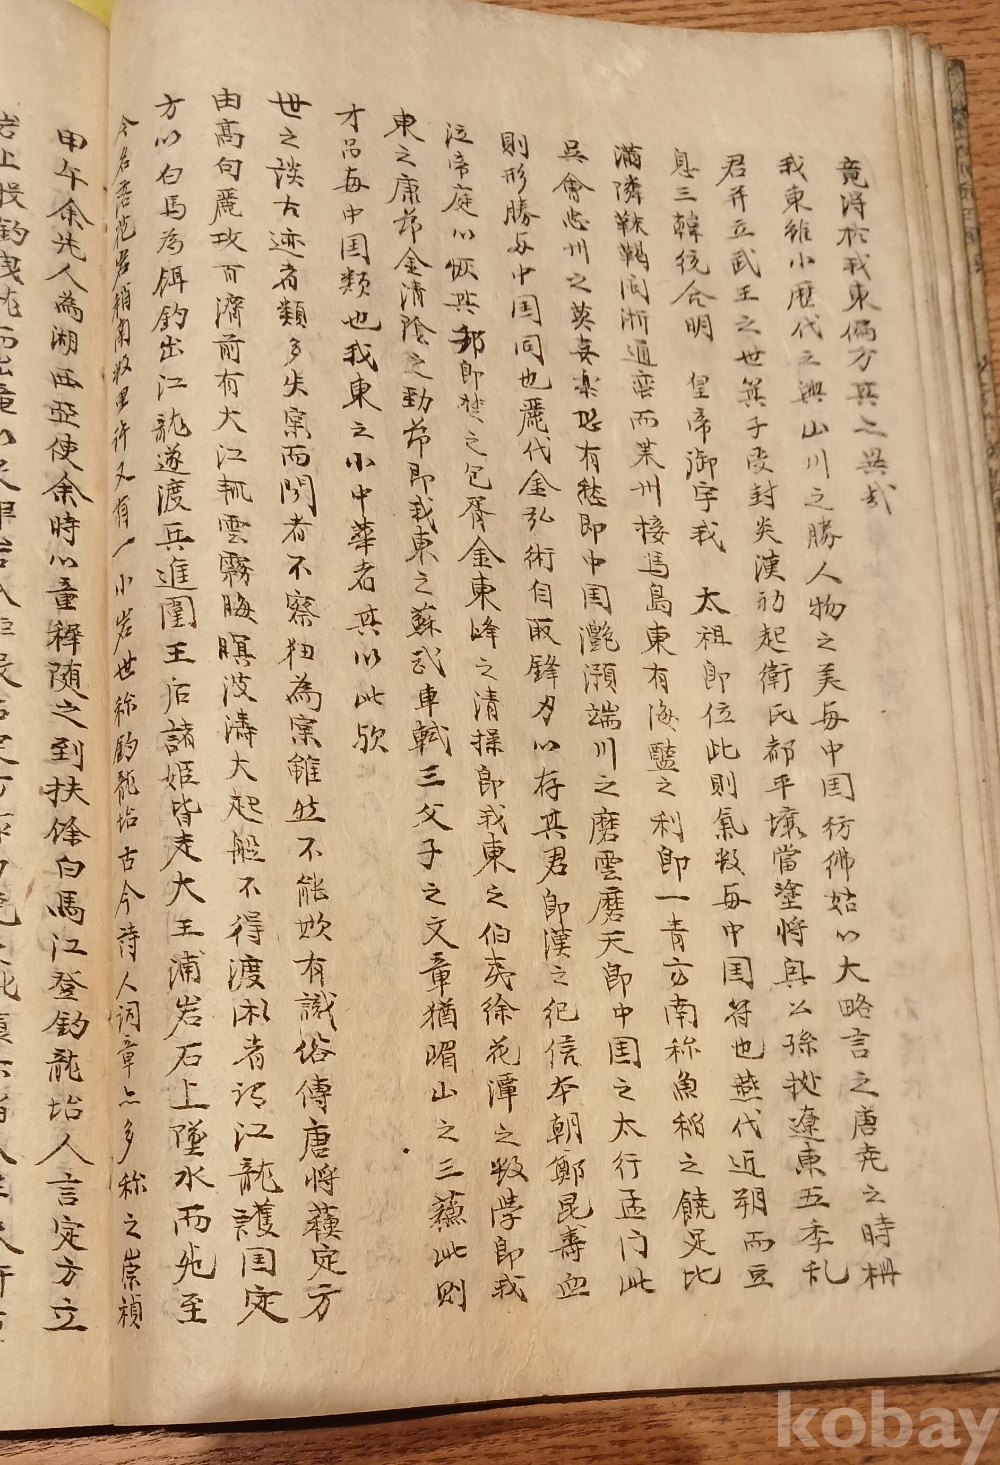 竟淂於我東偏方其亦異哉
我東雖小歷代之興山川之勝人物之美每中国彷彿姑以大略言之唐尭之時枏
君幷立武王之世箕子受封炎漢初起衛氏都平壤當塗將興公孫授遼東五季乱
息三韓統合明　皇帝御宇我　太祖即位此則氣数每中国符也燕代近朔而豆
滿隣靺鞨閩浙通蛮而莱州接馬島東有海塩之利即一青京南称魚稲之饒足比
吳會忠州之莫喜楽恐有愁即中国灔澦端川之磨雲磨天即中国之太行孟门此
則形勝每中国同也麗代金弘術自取鋒刃以存其君即漢之纪信本朝鄭昆壽血
泣帝庭以恢其邦即楚之包胥金東峰之清操即我東之伯夷徐花潭之数學即我
東之康节金清陰之勁节即我東之蘇武車軾三父子之文章猶眉山之三蘓此則
才品每中国類也我東之小中華者其以此欤
世之談古迹者類多失宲而聞者不察扭為宲雖然不能欺有識俗傳唐将蘓定方
由高句麗攻百濟前有大江輒雲霧晦暝波濤大起船不得渡泅者謂江龍護国定
方以白馬為餌釣出江龍遂渡兵進圍王后諸姬皆走大王浦岩石上墜水而死至
今名曰落花岩稍南数里許又有一小岩世称釣龍坮古今詩人词章亦多称之崇禎
甲午余先人為湖西亞使余時以童稺随之到扶餘白馬江登釣龍坮人言定方立
岩上投釣